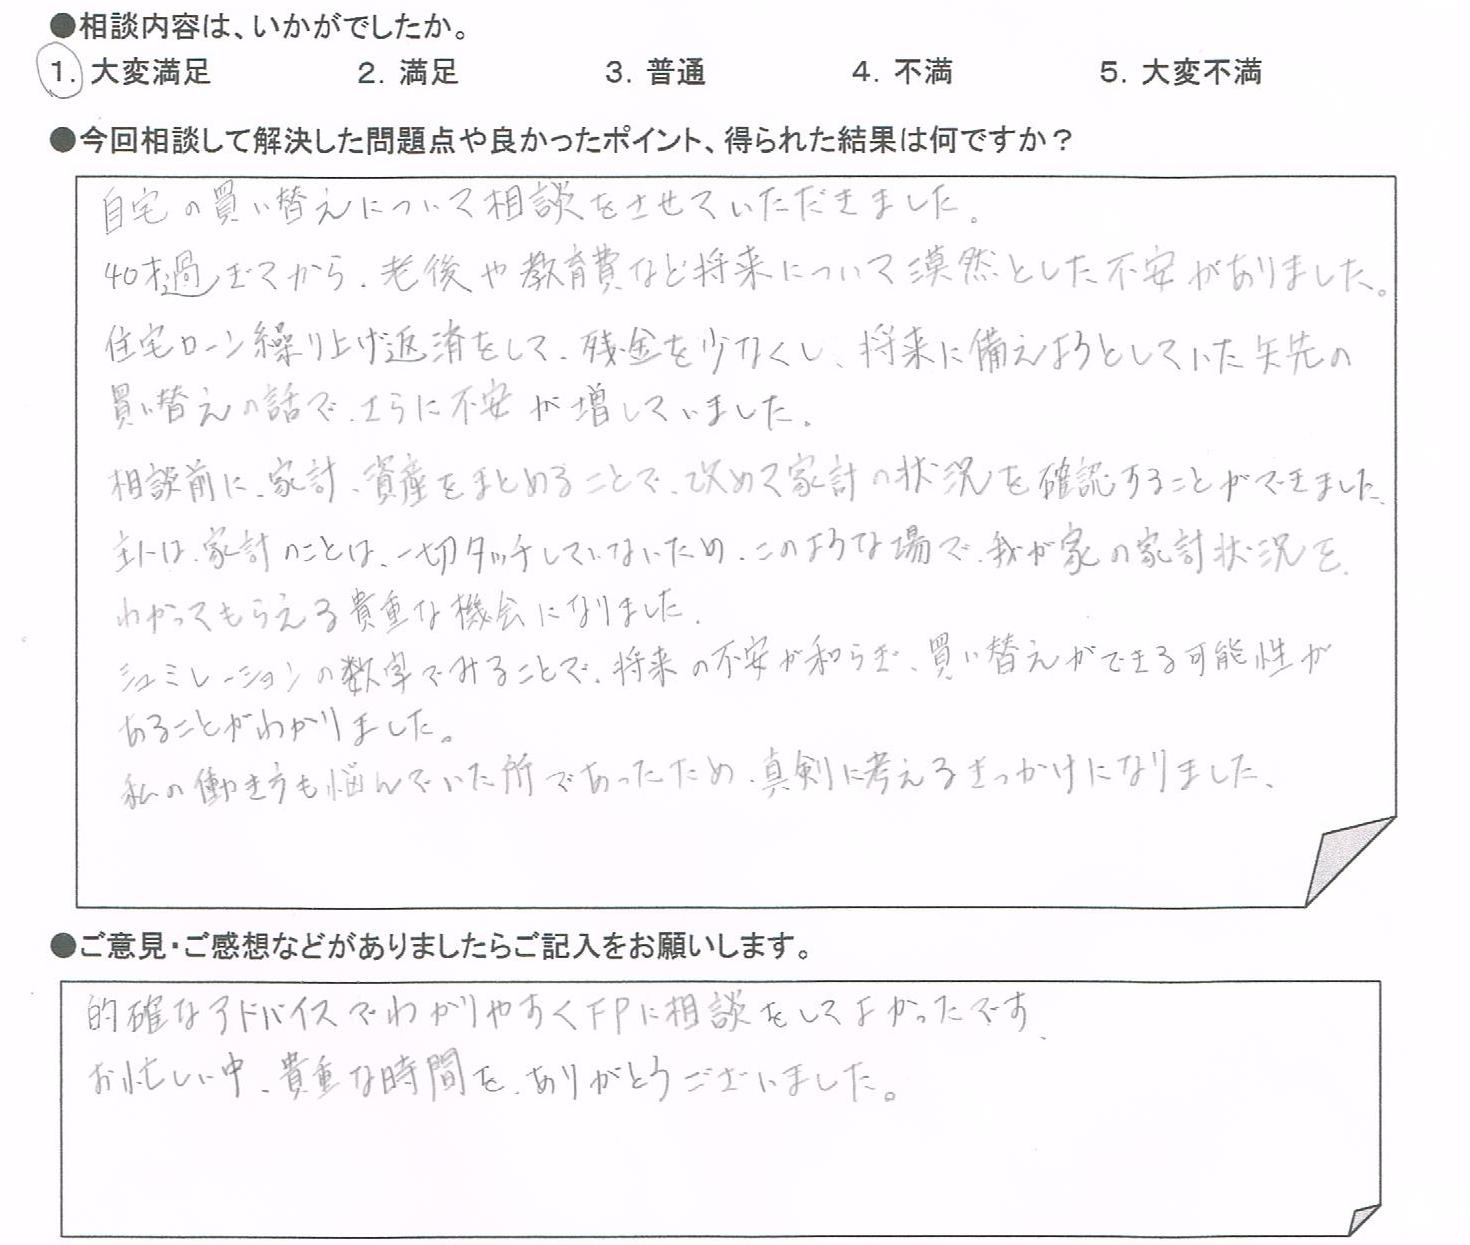 ●相談内容は、いかがでしたか。
1. 大変満足 2. 満足 3. 普通 4. 不満 5. 大変不満
●今回相談して解決した問題点や良かったポイント、得られた結果は何ですか？
自宅の買い替えについて相談をさせていただきました。
40才過ぎてから、老後や教育費など将来について漠然とした不安がありました。
住宅ローン繰り上げ返済をして、残金を少なくし、将来に備えようとしていた矢先の
買い替えの話で、さらに不安が増していました。
相談前に、家計、資産をまとめることで、改めて家計の状況を確認することができました、
主人は、家計のことは、一切タッチしていないため、このような場で、我が家の家計状況を、
わかってもらえる貴重な機会になりました、
シュミレーションの数字でみることで、将来の不安が和らぎ、買い替えができる可能性が
あることがわかりました。
私の働き方も悩んでいた所であったため、真剣に考えるきっかけになりました、
●ご意見・ご感想などがありましたらご記入をお願いします。
的確なアドバイスでわかりやすくFPに相談をしてよかったです、
お忙しい中、貴重な時間を、ありがとうございました。